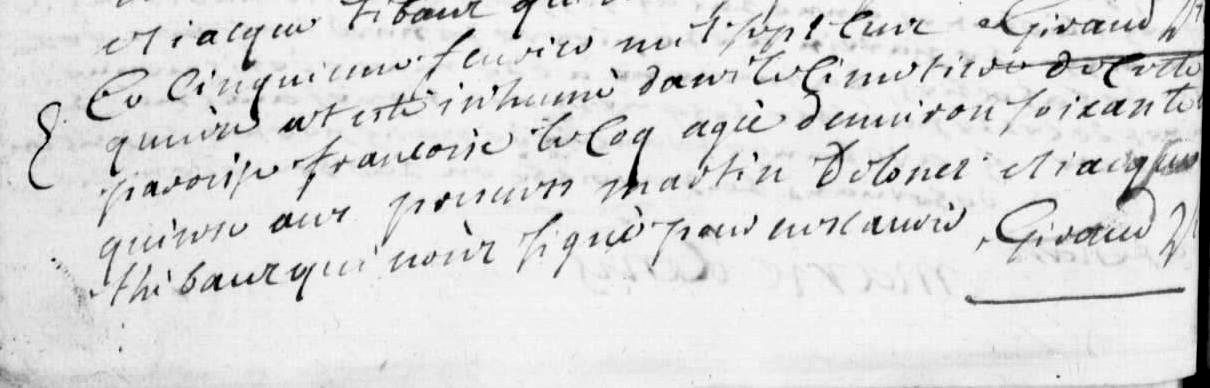 et iacque tibaut qui
Le cinquieme feuvier mil sept Cent Giraud
quinze at esté inhumé dans le Cimetiere de Cette
paroisse francoise le Coq agée denuiron soixante
quinse ans presens martin Delonet et iacques
thibaut qui nont signé pour ne scauoir, Giraud